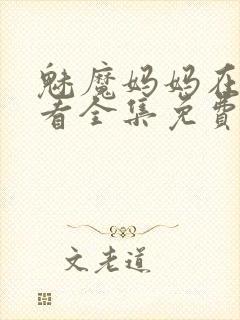 魅魔妈妈在
看全集免費
文老道